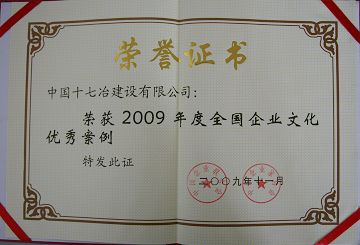 荣誉证书
中国十七冶建设有限公司：
荣获 2009 年度全国企业文化
优秀案例
特发此证
二〇〇九年十一月